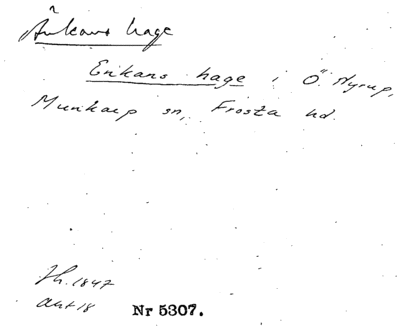 Änkans hage
Enkans hage i Ö. Hyrup,
Munkarp sn, Frosta hd.
Lh. 1847
akt 18 Nr 5307.